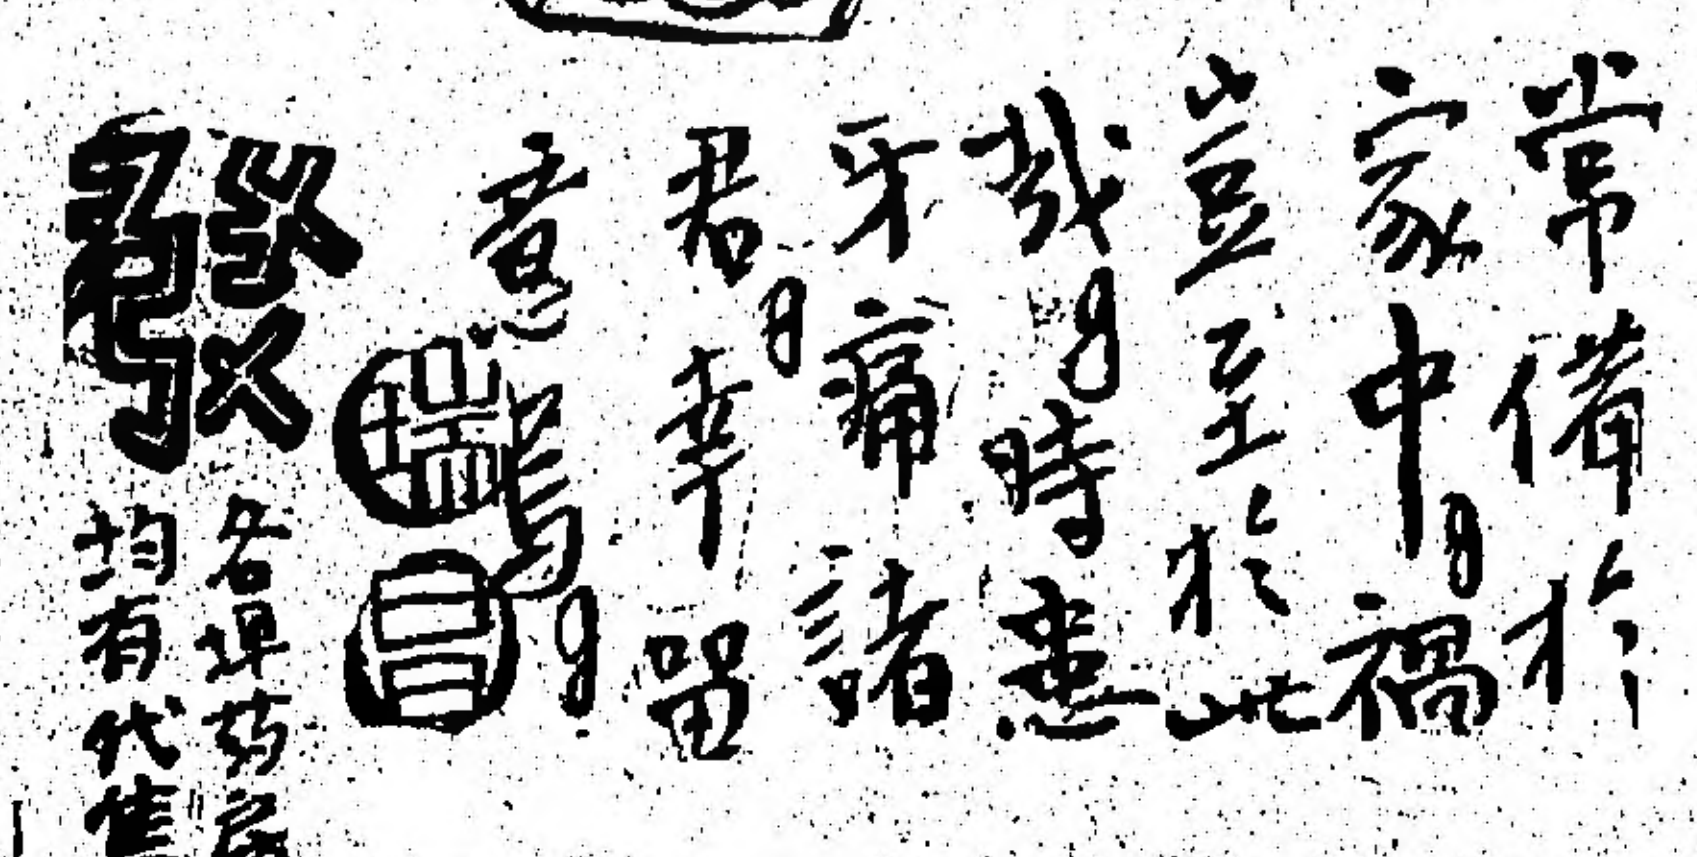 常備於
家中。禍
豈至於此
哉。時患
牙痛諸
君。幸留
意焉。
瑞昌
發
各埠药房
均有代售